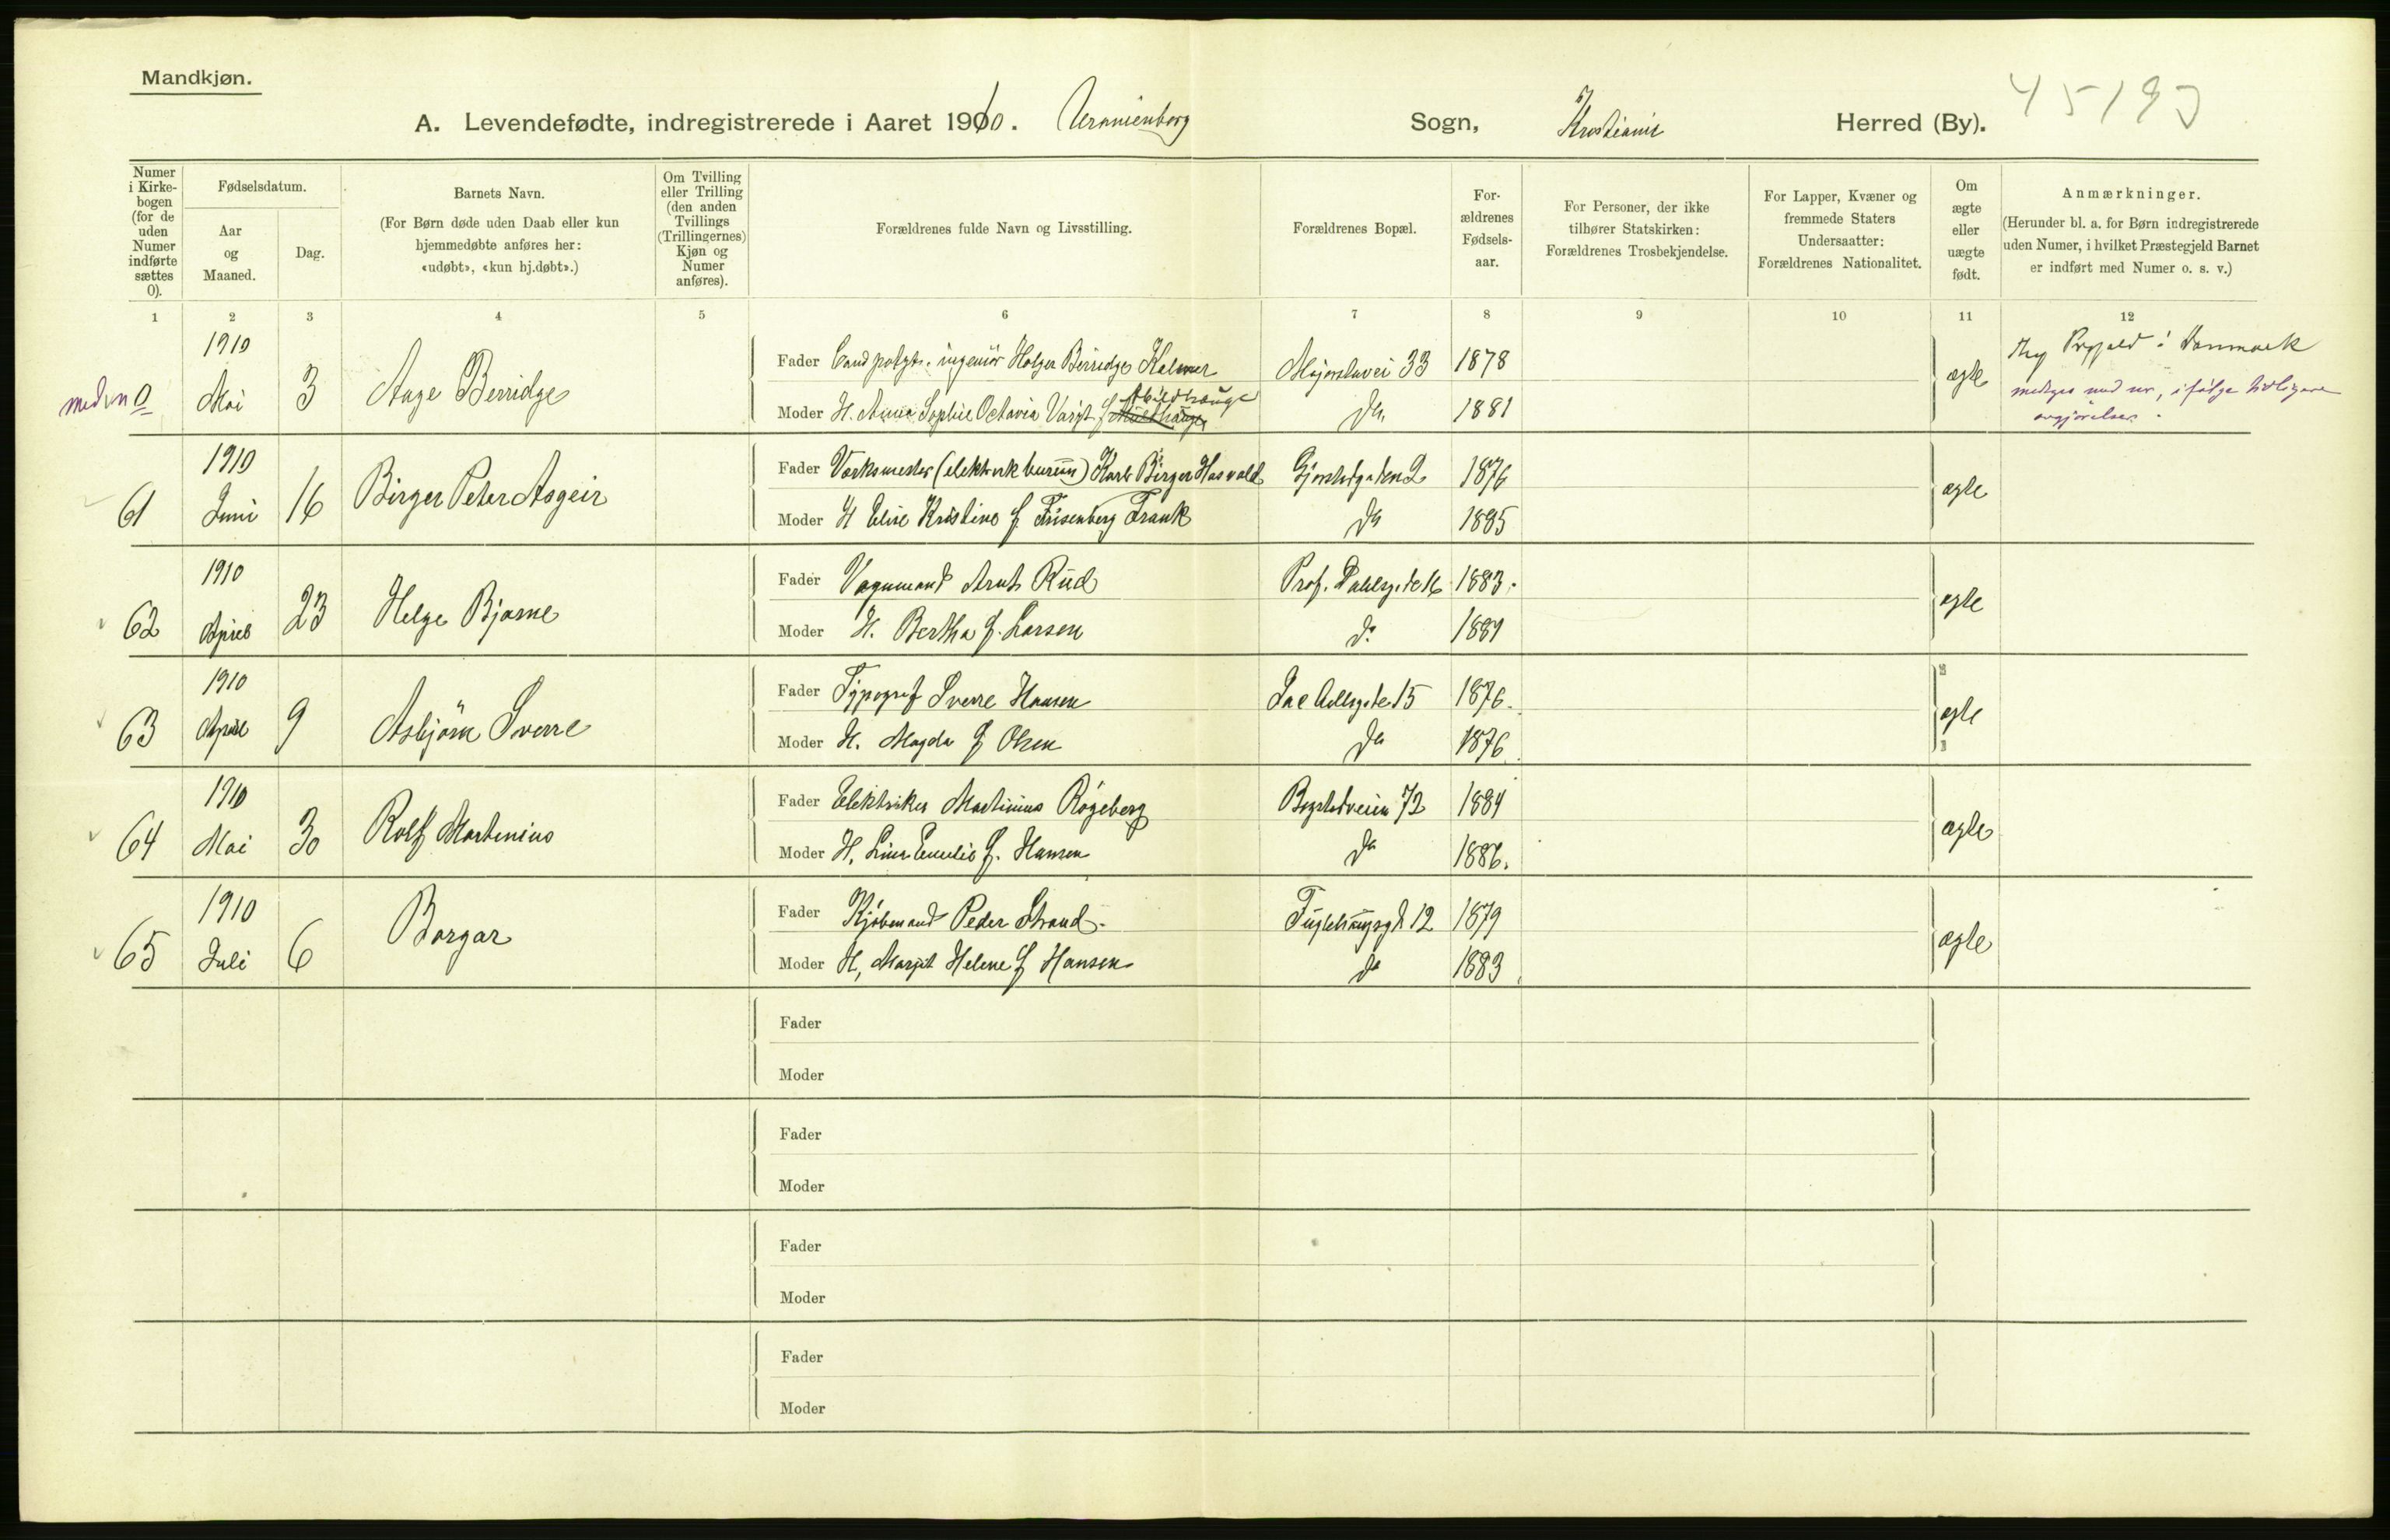 Mandkjøn.
A. Levendefødte, indregistrerede i Aaret 1910. Uranienborg Sogn, Kristiania Herred (By).
Numer i Kirkebogen (for de uden Numer indførte sættes 0).
Fødselsdatum.
Aar og Maaned.
Dag.
Barnets Navn.
(For Børn døde uden Daab eller kun hjemmedøbte anføres her: «udøbt», «kun hj.døbt».)
Om Tvilling eller Trilling (den anden Tvillings (Trillingernes) Kjøn og Numer anføres).
Forældrenes fulde Navn og Livsstilling.
Forældrenes Bopæl.
Forældrenes Fødselsaar.
For Personer, der ikke tilhører Statskirken: Forældrenes Trosbekjendelse.
For Lapper, Kvæner og fremmede Staters Undersaatter: Forældrenes Nationalitet.
Om ægte eller uægte født.
Anmærkninger.
(Herunder bl. a. for Børn indregistrerede uden Numer, i hvilket Præstegjeld Barnet er indført med Numer o. s. v.)
1 2 3 4 5 6 7 8 9 10 11 12
0 1910 Mai 3 Aage Berridge
Fader Cand polyt. ingeniör Holger Berridge 1878
Moder H. Anna Sophie Octavia f. Abildhauge do 1881
ægte
i Danmark
medtages med nr, ifølge tidligere
avgjørelser.
61 1910 Juni 16 Birger Peter Asgeir
Fader Værksmester Karl Birger Hasvold 1876
Moder H Elise Kristine f. Frisenberg Frank do 1885
ægte
62 1910 April 23 Helge Bjarne
Fader Vognmand Arnt Rud Prof. Dahlsgate 16 1883.
Moder H. Bertha f. Larsen do
ægte
63 1910 April 9 Asbjörn Sverre
Fader Typograf Sverre Hansen Jac Aallsgate 15 1876.
Moder H. Magda f Olsen do 1876.
ægte
64 1910 Mai 30 Rolf Martinius
Fader Elektriker Martinius Rögeberg Bogstadveien 72 1884
Moder H. Lina Emilie f. Hansen do 1886.
ægte
65 1910 Juli 6 Borgar
Fader Kjøbmand Peder Strand. Fuglehaugsgt 12 1879
Moder H, Margit Helene f Hansen do 1883.
ægte
Fader
Moder
Fader
Moder
Fader
Moder
Fader
Moder